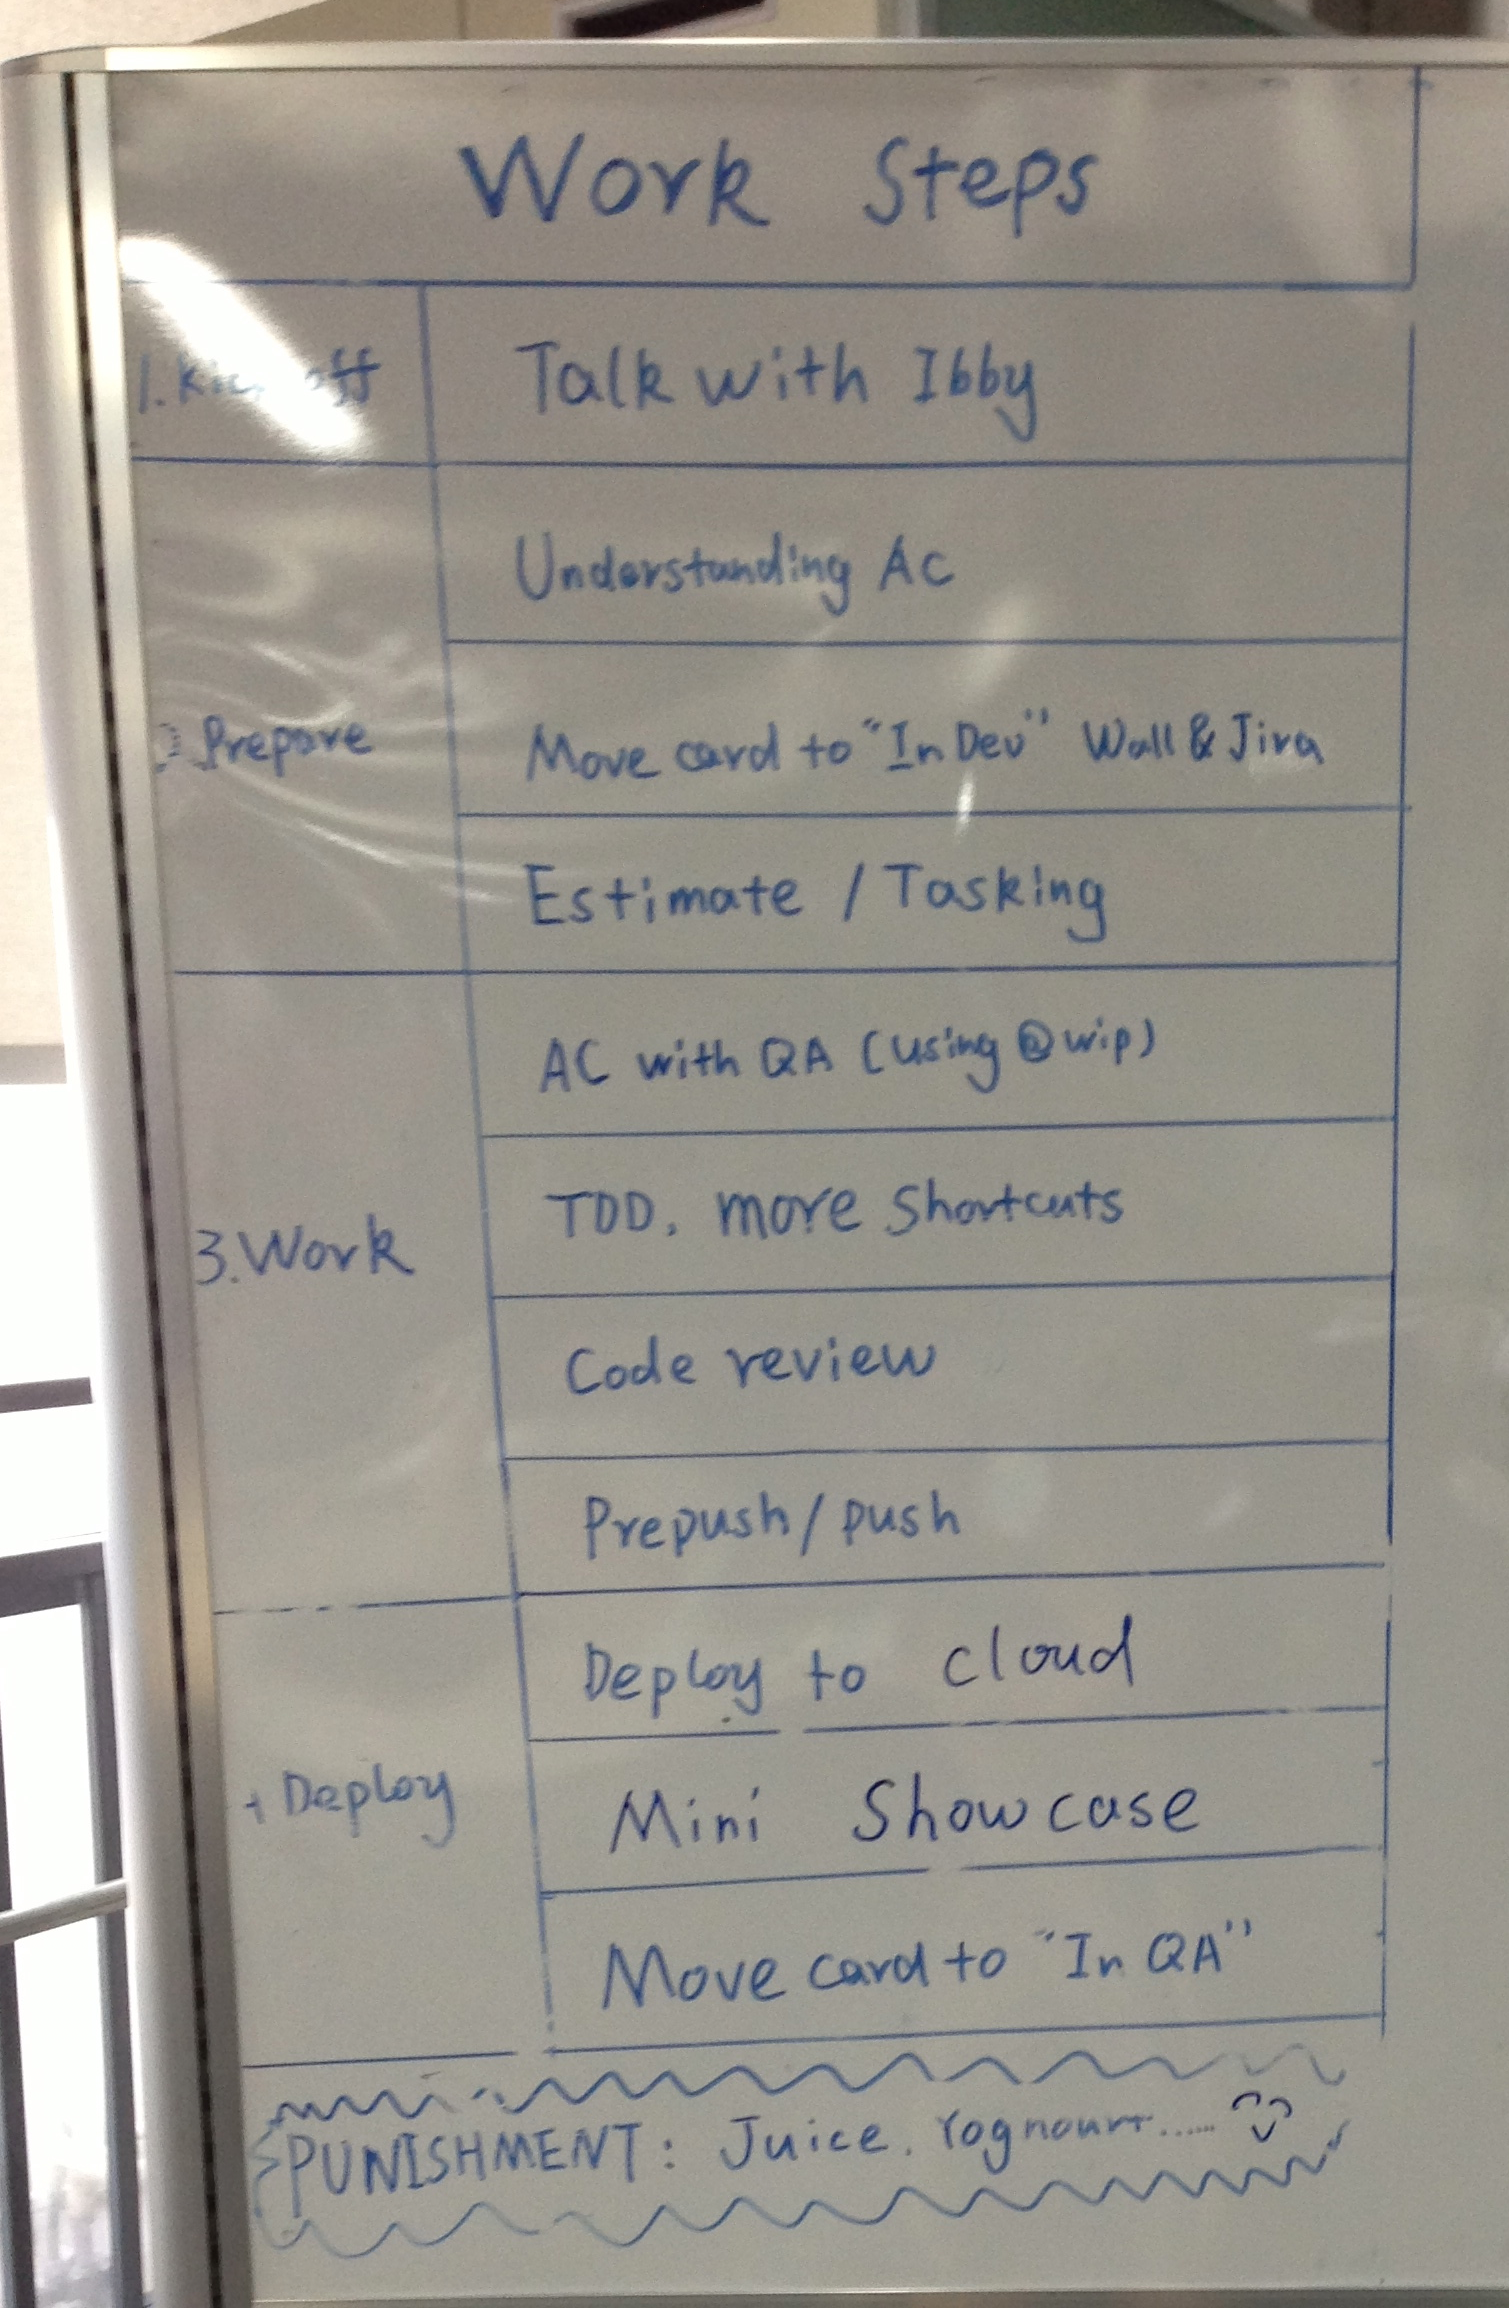 Work Steps
1. Kick off
Talk with Ibby
Understanding AC
Prepare
Move card to "In Dev" Wall & Jira
Estimate / Tasking
AC with QA (using @wip)
TDD. more shortcuts
3. Work
Code review
Prepush / push
Deploy to cloud
Deploy
Mini Showcase
Move card to "In QA"
PUNISHMENT: Juice. Yognourt......